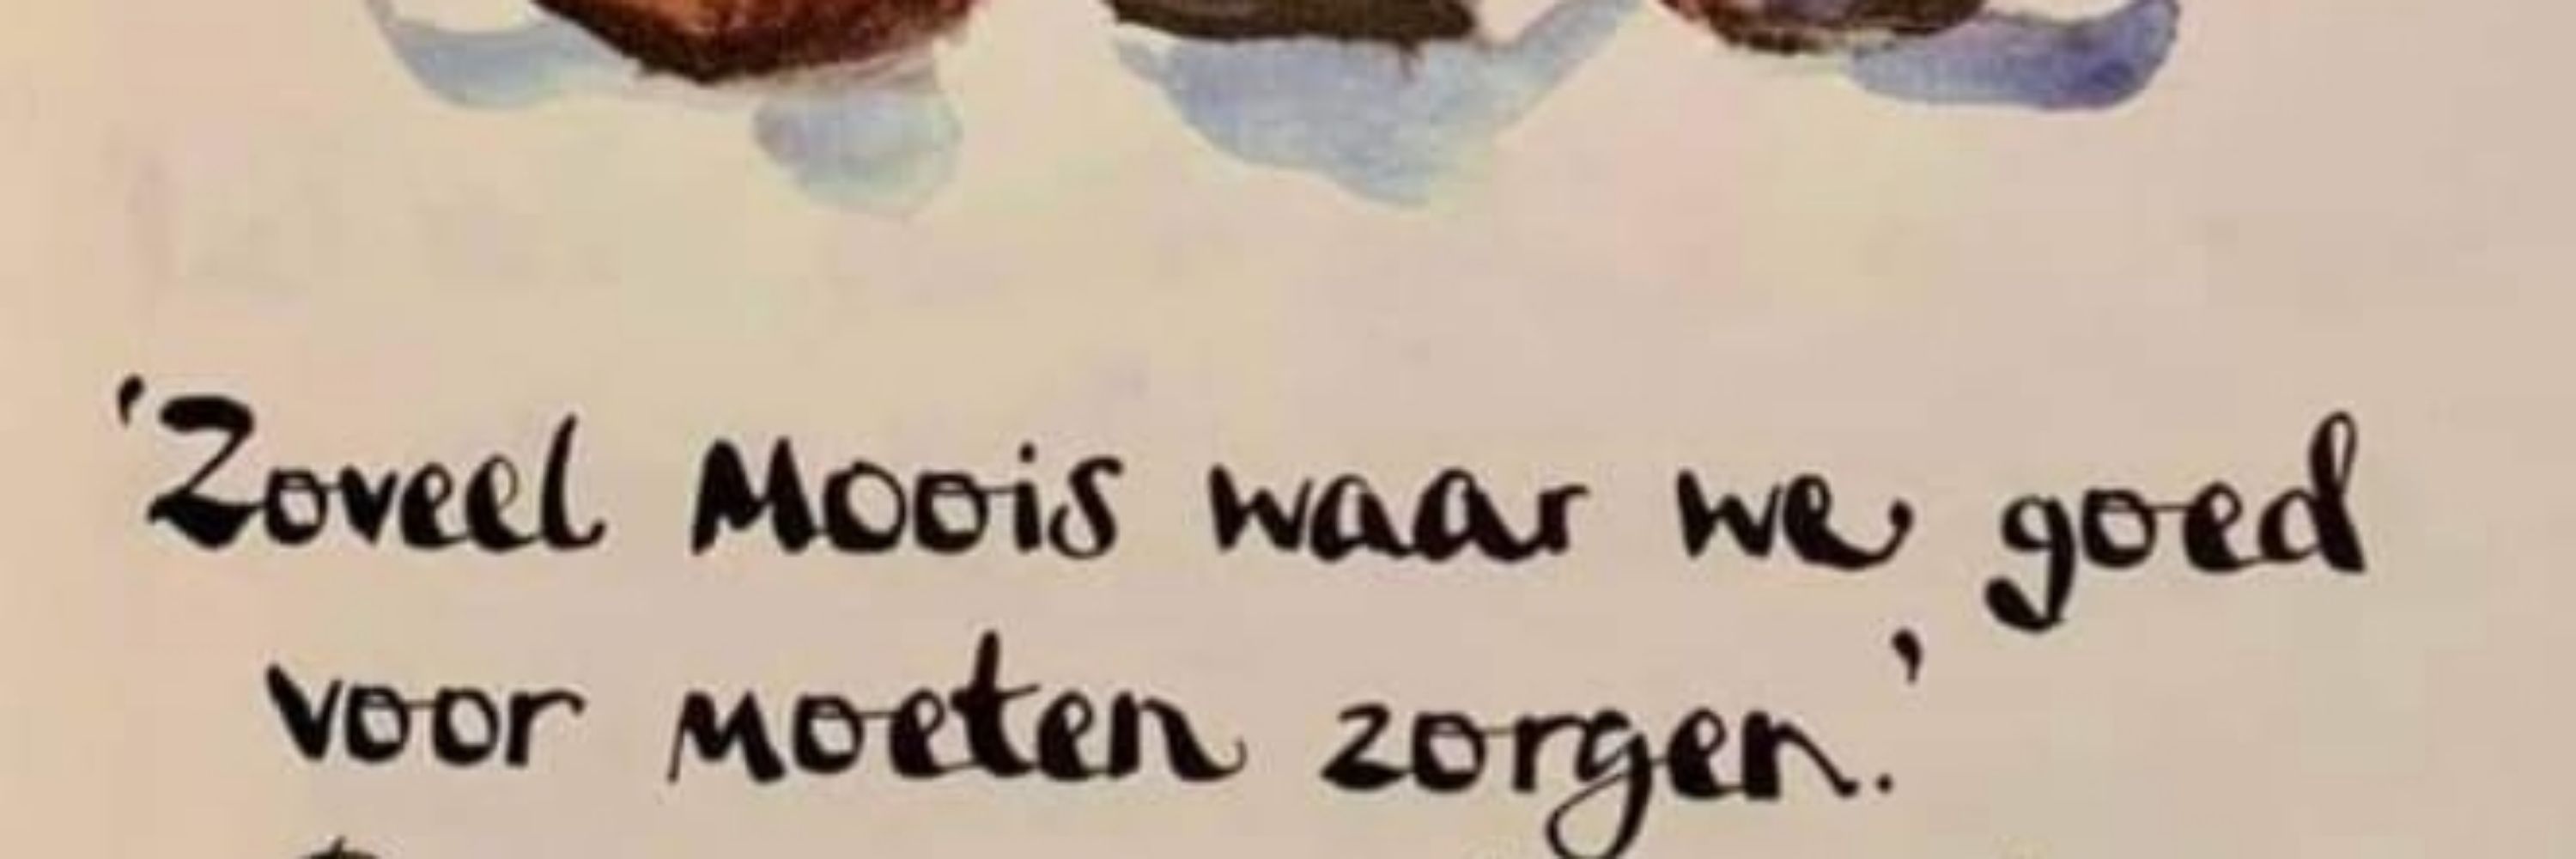 'Zoveel Moois waar we goed
voor moeten zorgen.'